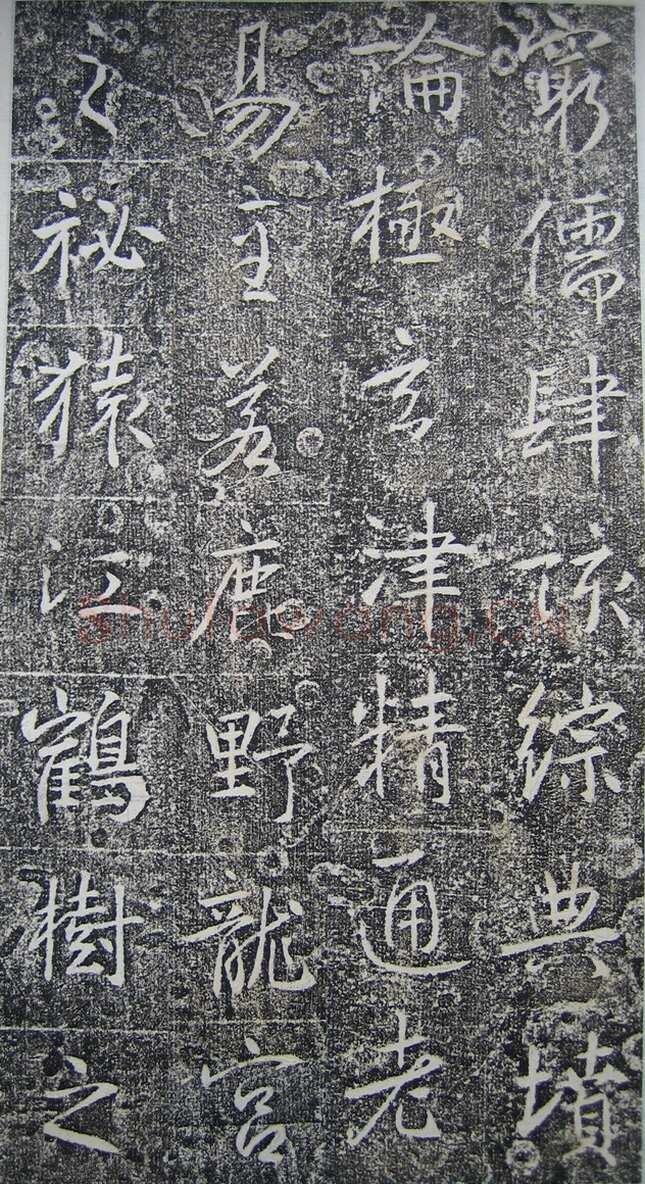 窮儒肆該綜典墳
論極玄津精通老
易至若鹿野龍宮
之祕猿江鶴樹之
shufawang.CN